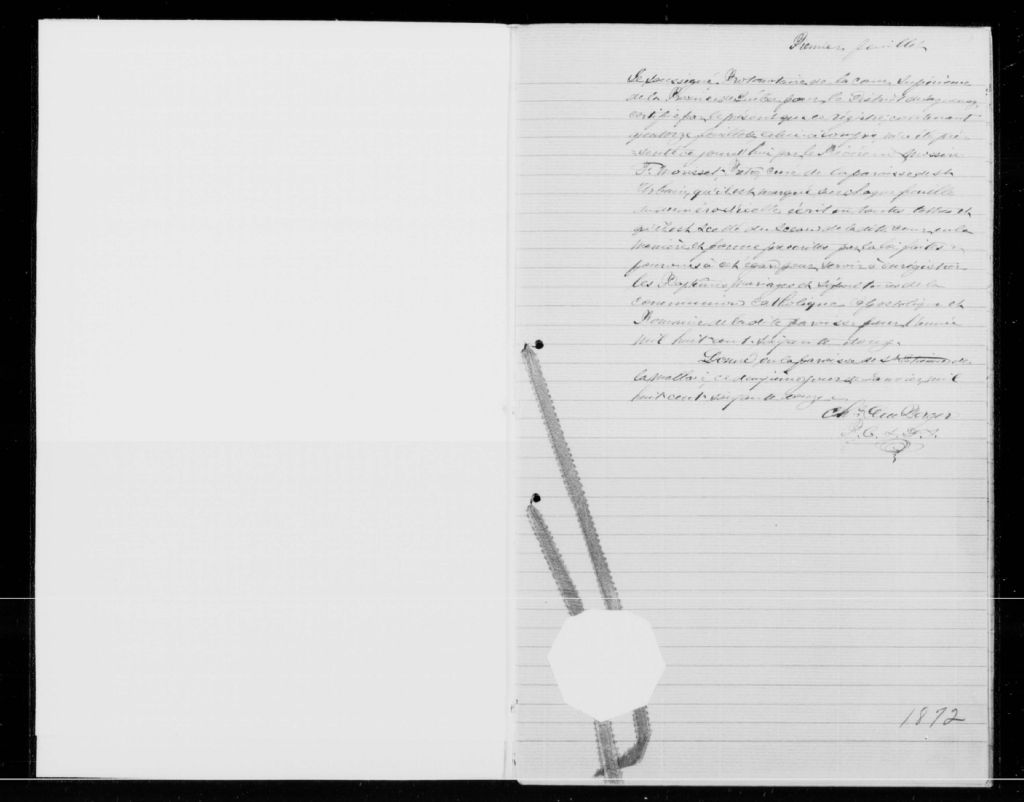 Premier feuillet
Je soussigné Protonotaire de la cour Supérieure
de la Province de Québec pour le District de Saguenay
certifie par le présent que ce régistre contenant
quatorze feuillets celui-ci compris, m'a été pré-
senté ce jourd'hui par le Révérend Messire
Ptre, curé de la paroisse de St
Urbain, qu'il est marqué sur chaque feuillet
écrit en toutes lettres et
qu'il est scellé du Sceau de la dite cour, en la
manière et forme prescrites par la loi faites &
pourvues à cet égard pour servir à enrégistrer
les Baptêmes, mariages et sépultures de la
communion Catholique Apostolique et
Romaine de la dite paroisse pour l'année
mil huit cent soixante douze.
Donné en la paroisse de
la Malbaie ce deuxième jour de Janvier mil
huit cent soixante douze.
Chs
P. C. S. D. S.
1872